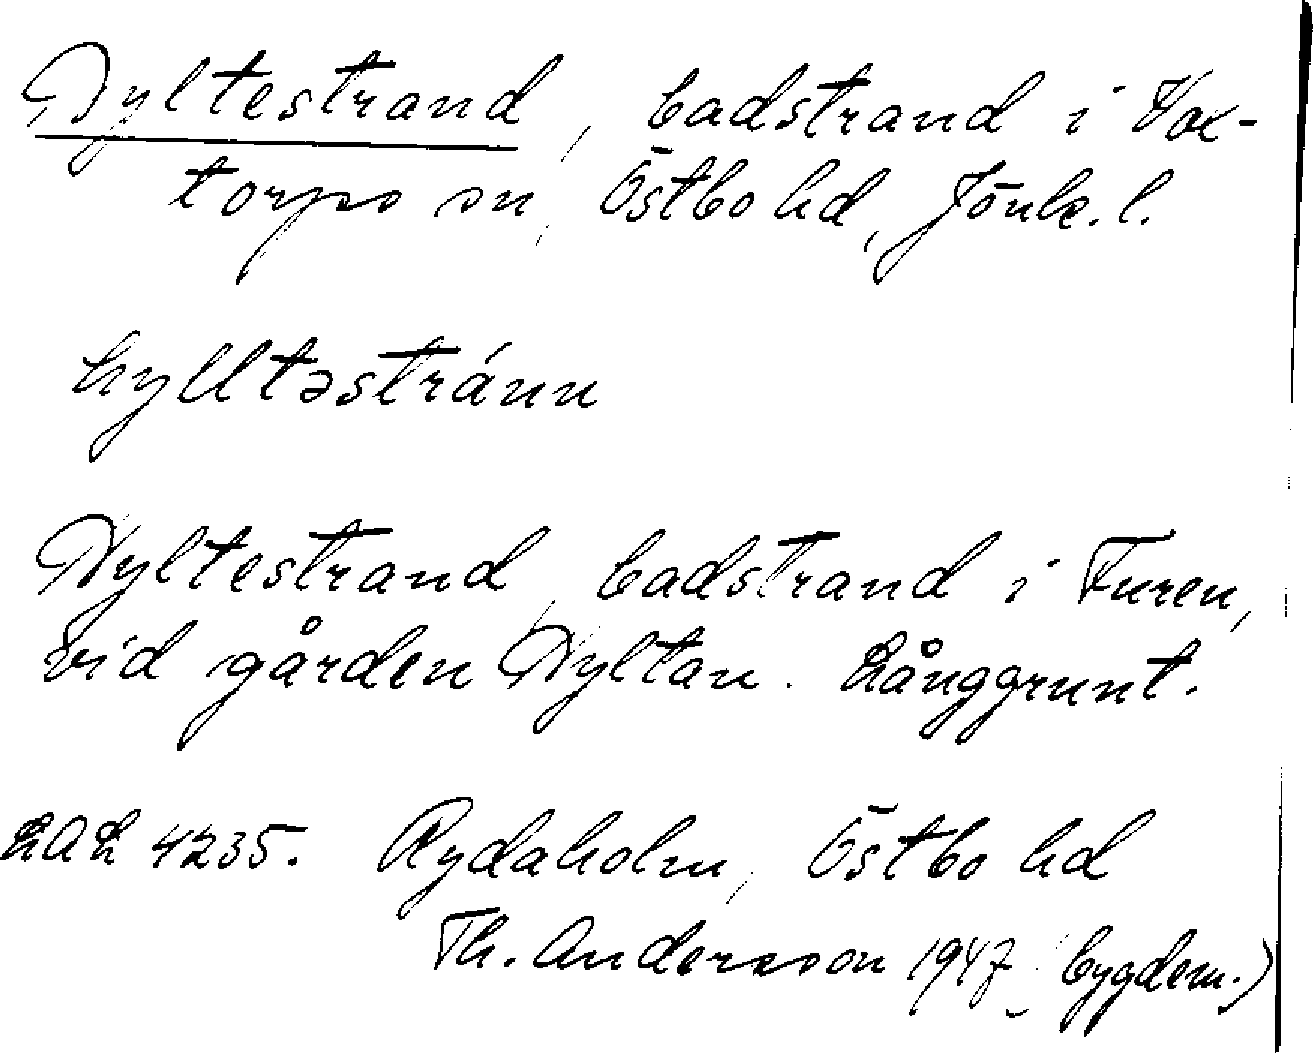 Hyltestrand, badstrand i Vox-
torps sn, Östbo hd, Jönk. l.
hylltəstránn
Hyltestrand, badstrand i Furen,
vid gården Hyltan. Långgrunt.
LAL 4235. Rydaholm, Östbo hd
Th. Andersson 1947 (bygdem.)